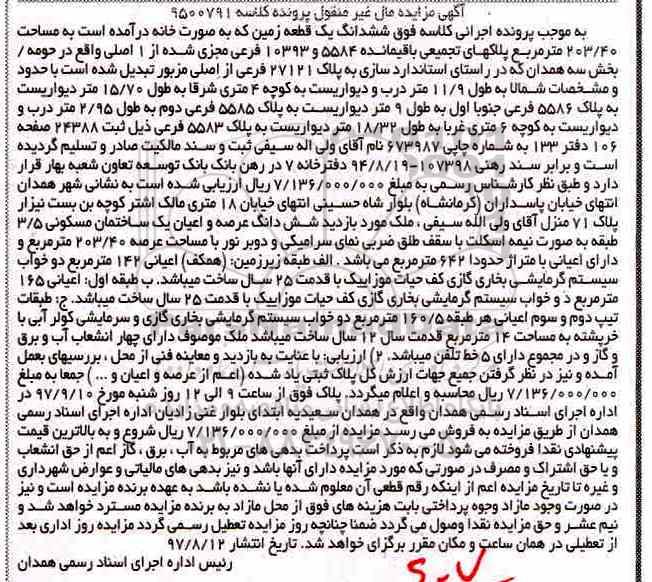 آگهی مزایده مال غیر منقول پرونده کلاسه ۹۵۰۰۷۹۱
به موجب پرونده اجرائی کلاسه فوق ششدانگ یک قطعه زمین که به صورت خانه درآمده است به مساحت
۲۰۳/۴۰ مترمربع پلاکهای تجمیعی باقیمانده ۵۵۸۴ و ۱۰۳۹۳ فرعی مجزی شده از ۱ اصلی واقع در حومه /
بخش سه همدان که در راستای استاندارد سازی به پلاک ۲۷۱۲۱ فرعی از اصلی مزبور تبدیل شده است با حدود
و مشخصات شمالا به طول ۱۱/۹ متر درب و دیواریست به کوچه ۴ متری شرقا به طول ۱۵/۷۰ متر دیواریست
به پلاک ۵۵۸۶ فرعی جنوبا اول به طول ۹ متر دیواریست به پلاک ۵۵۸۵ فرعی دوم به طول ۲/۹۵ متر درب و
دیواریست به کوچه ۶ متری غربا به طول ۱۸/۳۲ متر دیواریست به پلاک ۵۵۸۳ فرعی ذیل ثبت ۲۴۳۸۸ صفحه
۱۰۶ دفتر ۱۳۳ به شماره چاپی ۶۷۳۹۸۷ نام آقای ولی اله سیفی ثبت و سند مالکیت صادر و تسلیم گردیده
است و برابر سند رهنی ۱۰۷۳۹۸-۹۴/۸/۱۹ دفترخانه ۷ در رهن بانک بانک توسعه تعاون شعبه بهار قرار
دارد و طبق نظر کارشناس رسمی به مبلغ ۷/۱۳۶/۰۰۰/۰۰۰ ریال ارزیابی شده است به نشانی شهر همدان
انتهای خیابان پاسداران (کرمانشاه) بلوار شاه حسینی انتهای خیابان ۱۸ متری مالک اشتر کوچه بن بست نیزار
پلاک ۷۱ منزل آقای ولی الله سیفی ، ملک مورد بازدید شش دانگ عرصه و اعیان یک ساختمان مسکونی ۳/۵
طبقه به صورت نیمه اسکلت با سقف طاق ضربی نمای سرامیکی و دوبر نور با مساحت عرصه ۲۰۳/۴۰ مترمربع و
دارای اعیانی با متراژ حدودا ۶۴۲ مترمربع می باشد . الف طبقه زیرزمین: (همکف) اعیانی ۱۴۲ مترمربع دو خواب
سیستم گرمایشی بخاری گازی کف حیات موزاییک با قدمت ۲۵ سال ساخت میباشد. ب طبقه اول: اعیانی ۱۶۵
مترمربع دو خواب سیستم گرمایشی بخاری گازی کف حیات موزاییک با قدمت ۲۵ سال ساخت میباشد. ج: طبقات
تیپ دوم و سوم اعیانی هر طبقه ۱۶۰/۵ مترمربع دو خواب سیستم گرمایشی بخاری گازی و سرمایشی کولر آبی با
خرپشته به مساحت ۱۴ مترمربع قدمت سال ۱۲ سال ساخت میباشد ملک موصوف دارای چهار انشعاب آب و برق
و گاز و در مجموع دارای ۵ خط تلفن میباشد. ۲) ارزیابی: با عنایت به بازدید و معاینه فنی از محل ، بررسیهای بعمل
آمده و نیز در نظر گرفتن جمیع جهات ارزش کل پلاک ثبتی یاد شده (اعم از عرصه و اعیان و ... ) جمعا به مبلغ
۷/۱۳۶/۰۰۰/۰۰۰ ریال محاسبه و اعلام میگردد. پلاک فوق از ساعت ۹ الی ۱۲ روز شنبه مورخ ۹۷/۹/۱۰ در
اداره اجرای اسناد رسمی همدان واقع در همدان سعیدیه ابتدای بلوار غنی زادیان اداره اجرای اسناد رسمی
همدان از طریق مزایده به فروش می رسد مزایده از مبلغ ۷/۱۳۶/۰۰۰/۰۰۰ ریال شروع و به بالاترین قیمت
پیشنهادی نقدا فروخته می شود لازم به ذکر است پرداخت بدهی های مربوط به آب ، برق ، گاز اعم از حق انشعاب
و یا حق اشتراک و مصرف در صورتی که مورد مزایده دارای آنها باشد و نیز بدهی های مالیاتی و عوارض شهرداری
و غیره تا تاریخ مزایده اعم از اینکه رقم قطعی آن معلوم شده یا نشده باشد به عهده برنده مزایده است و نیز
در صورت وجود مازاد وجوه پرداختی بابت هزینه های فوق از محل مازاد به برنده مزایده مسترد خواهد شد و
نیم عشر و حق مزایده نقدا وصول می گردد ضمنا چنانچه روز مزایده تعطیل رسمی گردد مزایده روز اداری بعد
از تعطیلی در همان ساعت و مکان مقرر برگزای خواهد شد. تاریخ انتشار ۹۷/۸/۱۲
رئیس اداره اجرای اسناد رسمی همدان